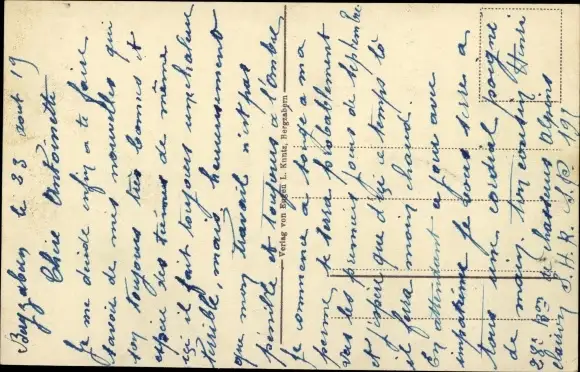 Bergzabern le 23 aout 19
Chère Antoinette
Je me décide enfin a te faire
savoir de mes nouvelles qui
son toujours très bonnes et
espère des tiennes de même
ici il fait toujours une chaleur
terrible, mais heureusement
que mon travail n'est pas
pénible et toujours a l'ombre
Verlag von Eugen L. Kuntz, Bergzabern
Je commence a songé a ma
perme je serai probablement
vers les premiers jours de septembre
et j'espère que d'ici ce temps là
il fera moin chaud.
En attendant ce jour avec
impatience je vous serre a
tous une cordial poigné
de main, ton cousin Henri
28e Bon de chasseurs Alpins
S.H.R. S.P. 191